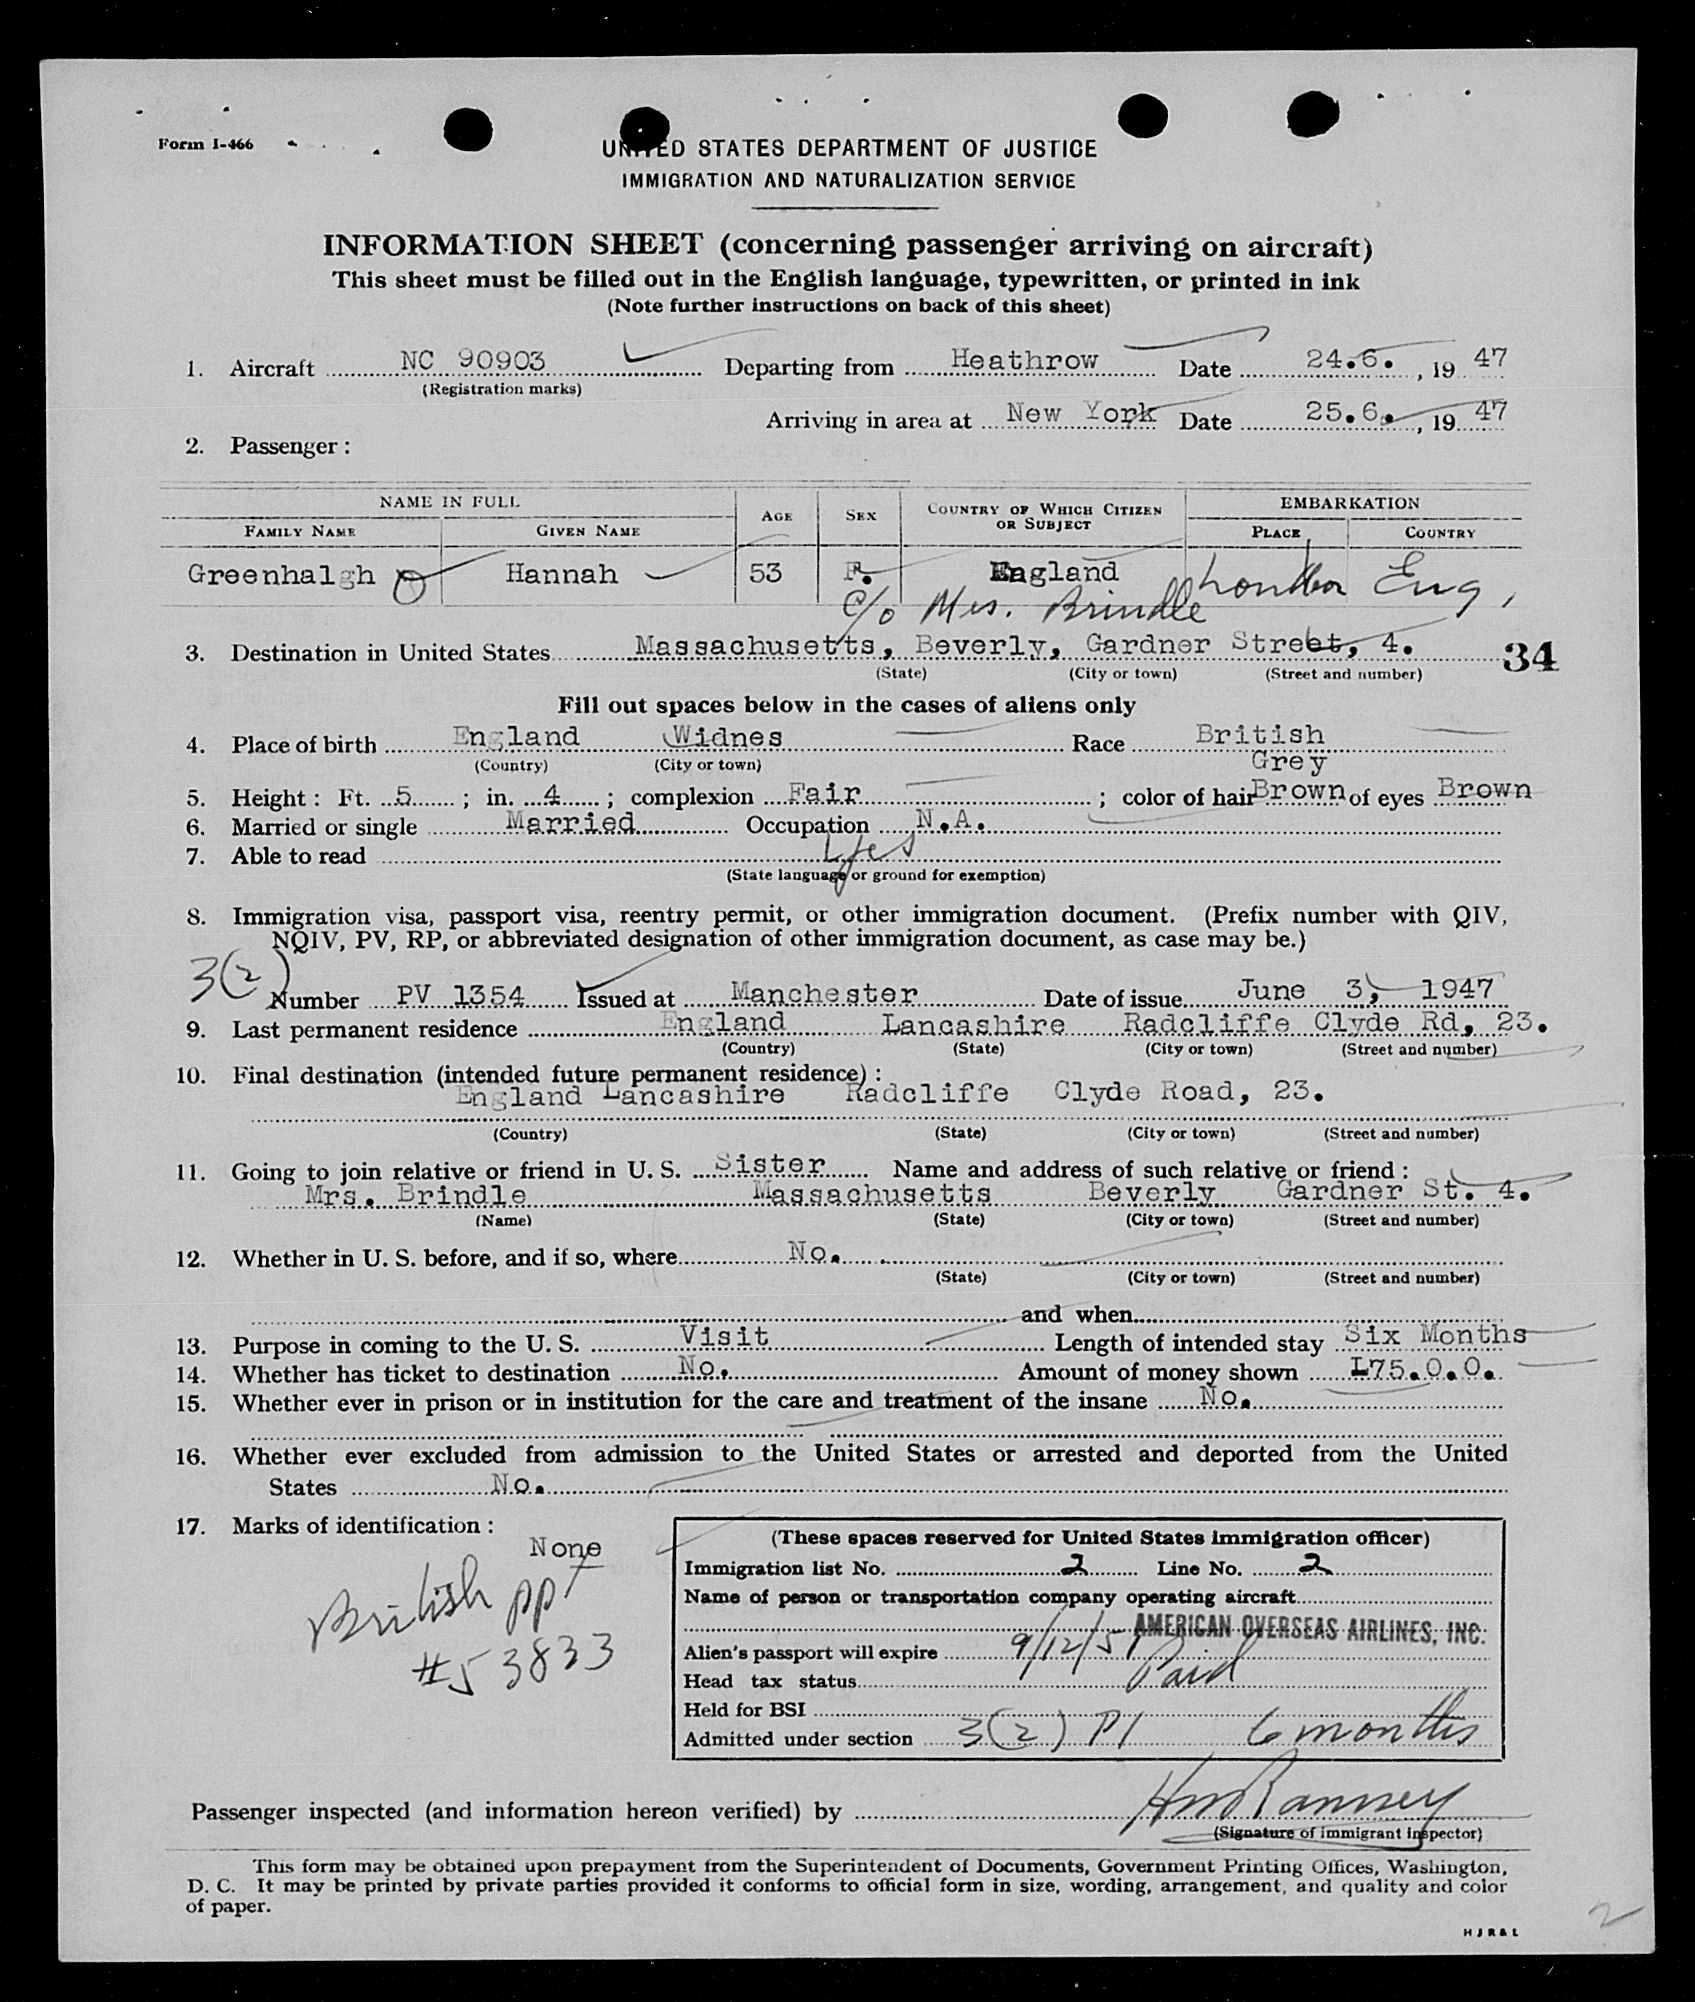 Form I-466
UNITED STATES DEPARTMENT OF JUSTICE
IMMIGRATION AND NATURALIZATION SERVICE
INFORMATION SHEET (concerning passenger arriving on aircraft)
This sheet must be filled out in the English language, typewritten, or printed in ink
(Note further instructions on back of this sheet)
1. Aircraft NC 90903 Departing from Heathrow Date 24.6. , 19 47
(Registration marks)
Arriving in area at New York Date 25.6. , 19 47
2. Passenger :
NAME IN FULL AGE SEX COUNTRY OF WHICH CITIZEN OR SUBJECT EMBARKATION
FAMILY NAME GIVEN NAME PLACE COUNTRY
Greenhalgh Hannah 53 F. England London Eng,
c/o Mrs. Brindle
3. Destination in United States Massachusetts, Beverly, Gardner Street, 4. 34
(State) (City or town) (Street and number)
Fill out spaces below in the cases of aliens only
4. Place of birth England Widnes Race British
(Country) (City or town) Grey
5. Height : Ft. 5 ; in. 4 ; complexion Fair ; color of hair Brown of eyes Brown
6. Married or single Married Occupation N.A.
7. Able to read Yes
(State language or ground for exemption)
8. Immigration visa, passport visa, reentry permit, or other immigration document. (Prefix number with QIV,
NQIV, PV, RP, or abbreviated designation of other immigration document, as case may be.)
3(2) Number PV 1354 Issued at Manchester Date of issue June 3, 1947
9. Last permanent residence England Lancashire Radcliffe Clyde Rd, 23.
(Country) (State) (City or town) (Street and number)
10. Final destination (intended future permanent residence) :
England Lancashire Radcliffe Clyde Road, 23.
(Country) (State) (City or town) (Street and number)
11. Going to join relative or friend in U. S. Sister Name and address of such relative or friend :
Mrs. Brindle Massachusetts Beverly Gardner St. 4.
(Name) (State) (City or town) (Street and number)
12. Whether in U. S. before, and if so, where No.
(State) (City or town) (Street and number)
and when
13. Purpose in coming to the U. S. Visit Length of intended stay Six Months
14. Whether has ticket to destination No. Amount of money shown L75.0.0.
15. Whether ever in prison or in institution for the care and treatment of the insane No.
16. Whether ever excluded from admission to the United States or arrested and deported from the United
States No.
17. Marks of identification :
None
British ppt
#53833
(These spaces reserved for United States immigration officer)
Immigration list No. 2 Line No. 2
Name of person or transportation company operating aircraft
AMERICAN OVERSEAS AIRLINES, INC.
Alien's passport will expire 9/12/51
Head tax status Paid
Held for BSI
Admitted under section 3(2) P1 6 months
Passenger inspected (and information hereon verified) by HM Ranney
(Signature of immigrant inspector)
This form may be obtained upon prepayment from the Superintendent of Documents, Government Printing Offices, Washington,
D. C. It may be printed by private parties provided it conforms to official form in size, wording, arrangement, and quality and color
of paper.
H J R & L
2